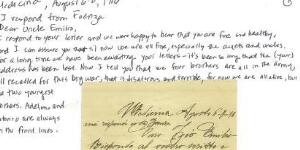 Medicina, August 6
I respond from Faenza
Dear Uncle Emilio,
I respond to your letter and we were happy to hear that you are fine and healthy,
and I can assure you that now we are all fine, especially the aunts and uncles.
For a long time we have been awaiting your letters - it's been so long that the (your)
address has been lost. Now I tell you that we four brothers are all in the Army,
all recalled for this big war, that is disastrous and terrible, for now we are all alive, but
two youngest
are always
on the front lines.
Medicina, Agosto 6
Caro Zio Emilio
Rispondo al vostro scritto e